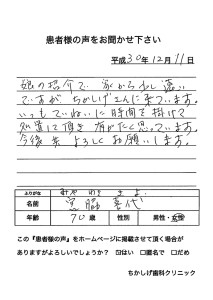 患者様の声をお聞かせ下さい
平成30年12月11日
娘の紹介で 家からわ 遠い
ですが、ちかしげさんに来ています。
いつもていねいに時間を掛けて
処置して頂き 有がたく思っています。
今後共 よろしくお願いします。
ふりがな みやわき きよ
名前 宮脇 喜代
年齢 70歳 性別 男性・女性
この『患者様の声』をホームページに掲載させて頂く場合が
ありますがよろしいでしょうか？ ☑はい □匿名で □だめ
ちかしげ歯科クリニック